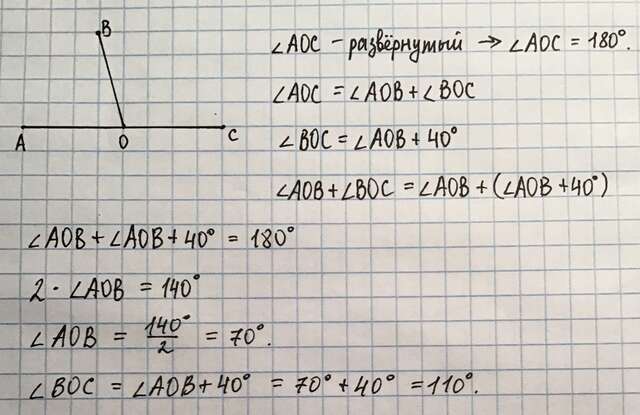 B
A O C
∠AOC – развёрнутый → ∠AOC = 180°.
∠AOC = ∠AOB + ∠BOC
∠BOC = ∠AOB + 40°
∠AOB + ∠BOC = ∠AOB + (∠AOB + 40°)
∠AOB + ∠AOB + 40° = 180°
2 · ∠AOB = 140°
∠AOB = 140°/2 = 70°.
∠BOC = ∠AOB + 40° = 70° + 40° = 110°.